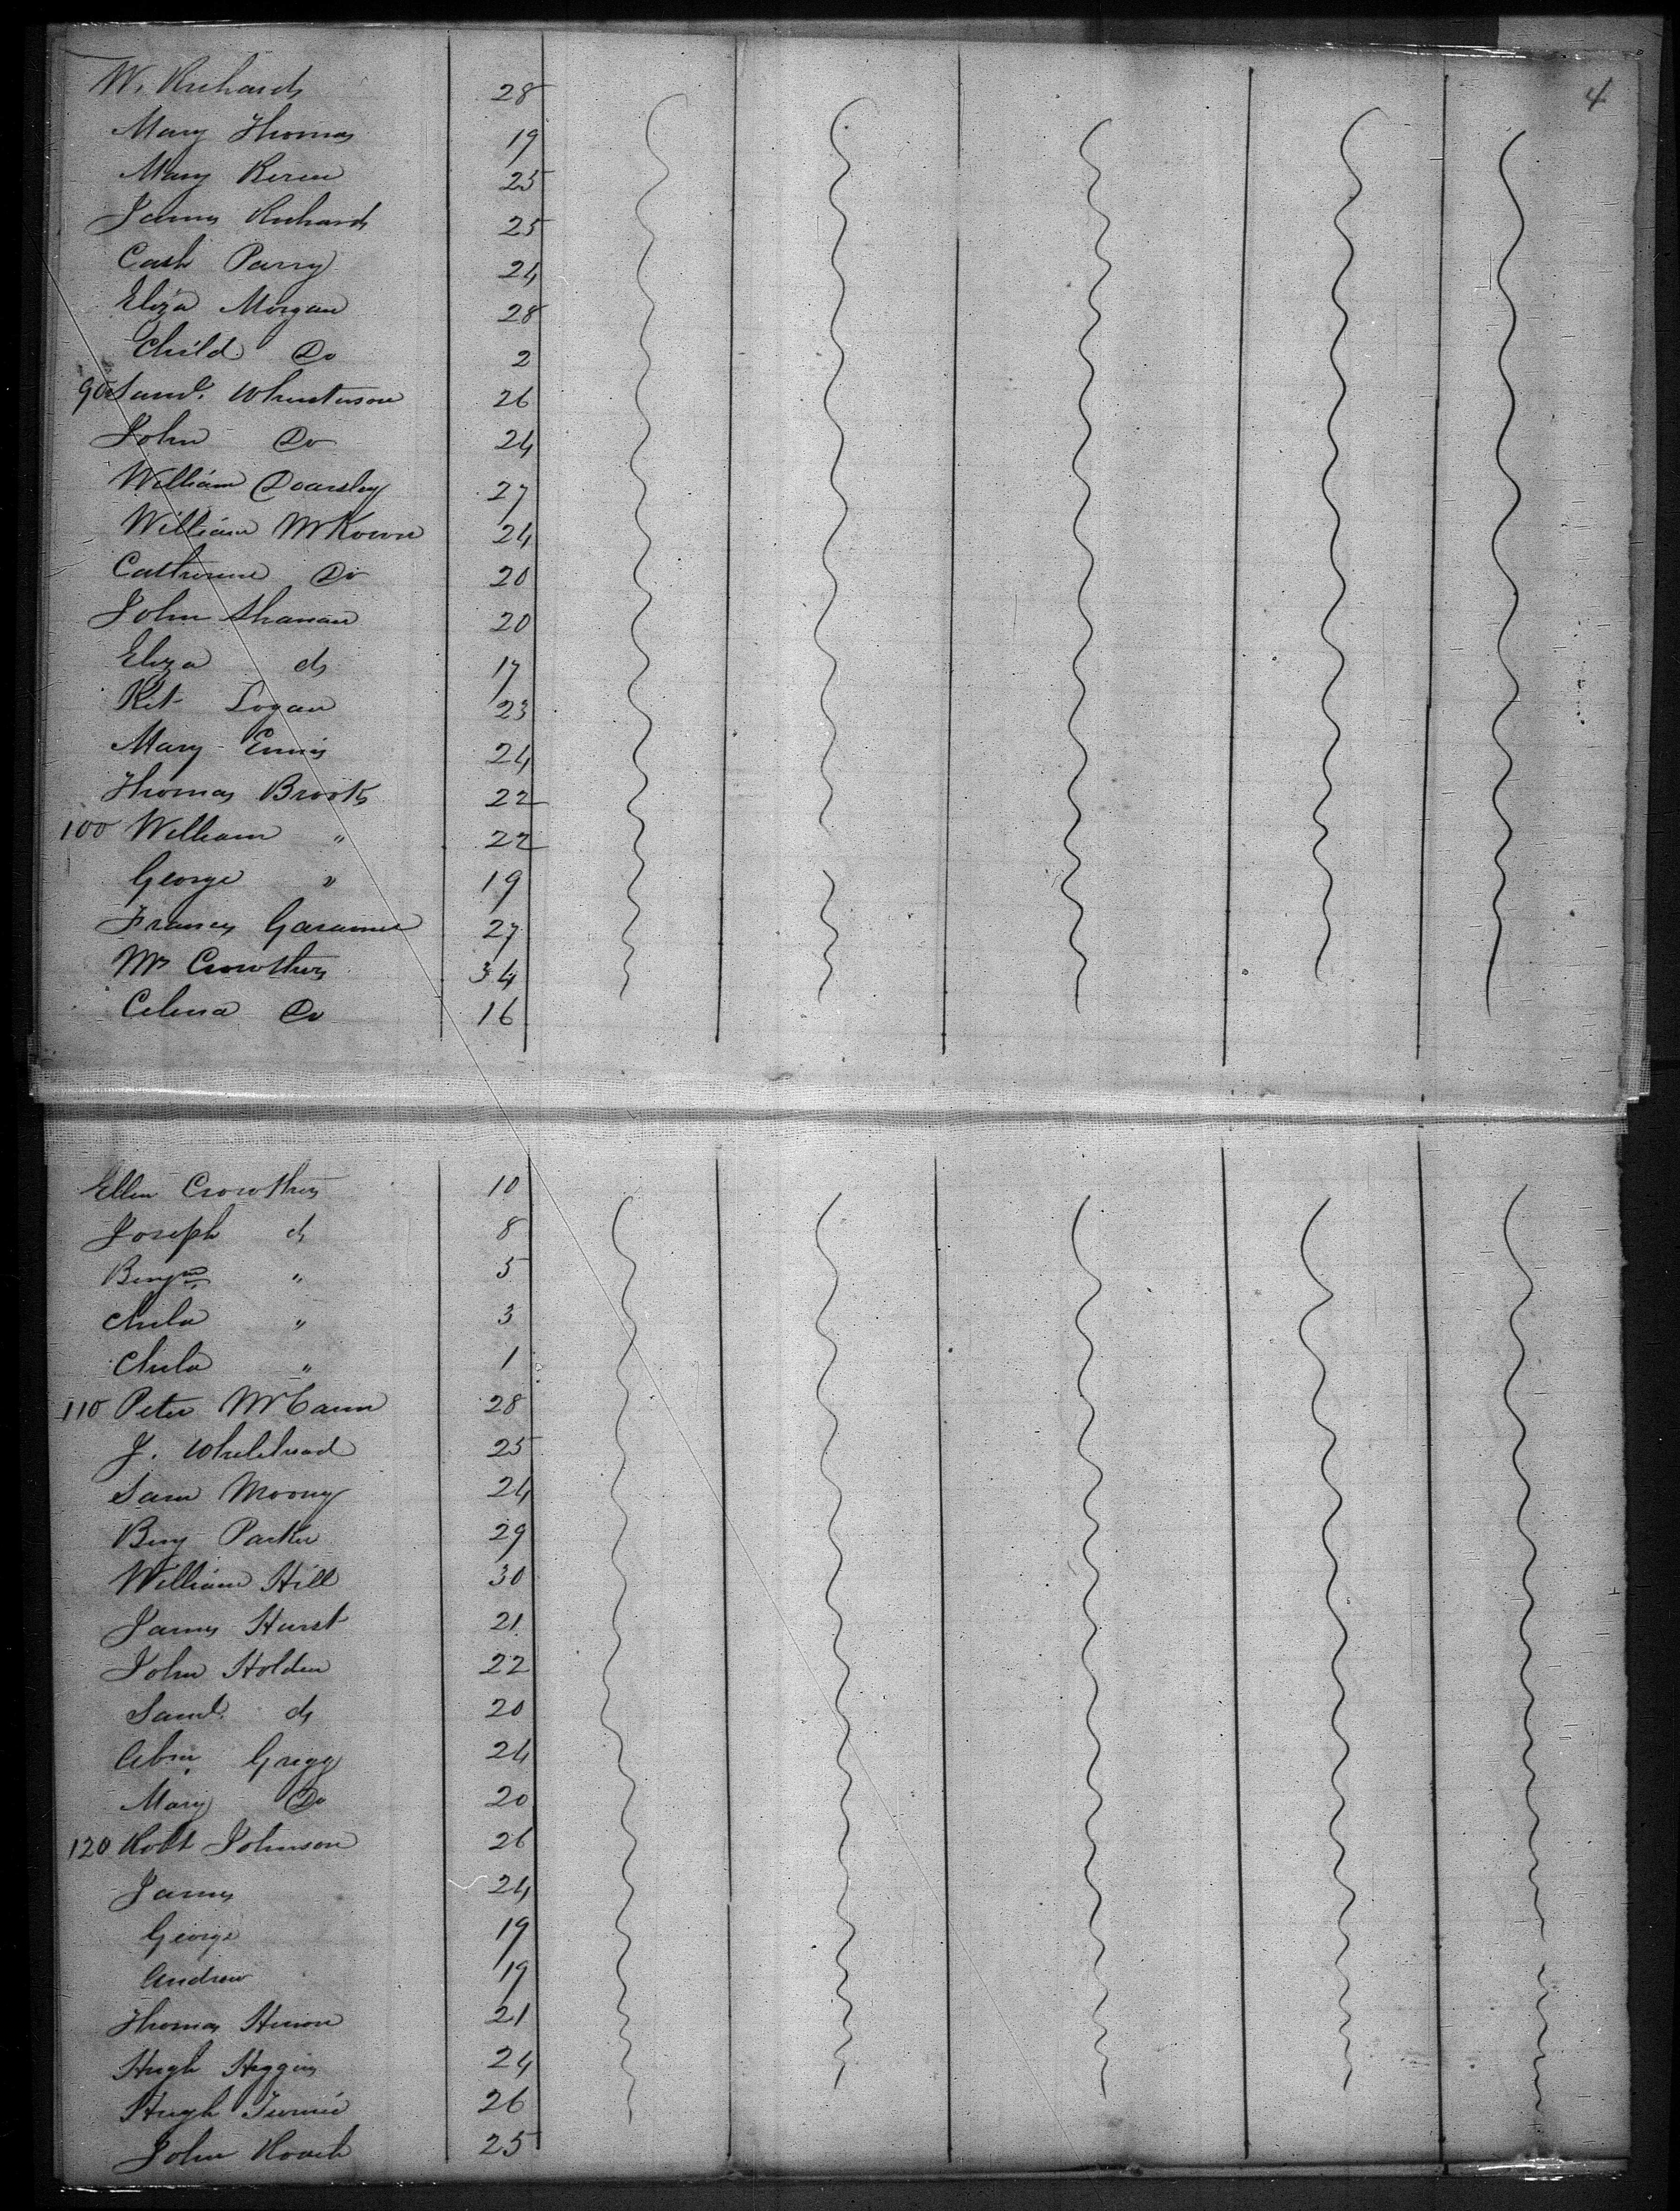 4
W. Richards 28
Mary Thomas 19
Mary 25
James Richards 25
Cath Parry 24
Eliza Morgan 28
Child Do 2
90 Saml. 26
John Do 24
William Doarsley 27
William McKown 24
Catherine Do 20
John Shanan 20
Eliza do 17
Kit Logan 23
Mary Ennis 24
Thomas Brooks 22
100 William " 22
George " 19
Frances 27
Mrs Crowthers 34
Celina Do 16
Ellen Crowthers 10
Joseph do 8
Benjm " 5
Child " 3
Child " 1
110 Peter McCann 28
J. Whitehead 25
Sam Moony 24
Benj Parker 29
William Hill 30
James Hurst 21
John Holden 22
Saml. do 20
Abm. Gregg 24
Mary Do 20
120 Robt Johnson 26
James 24
George 19
Andrew 19
Thomas 21
Hugh Higgins 24
Hugh 26
John Roach 25